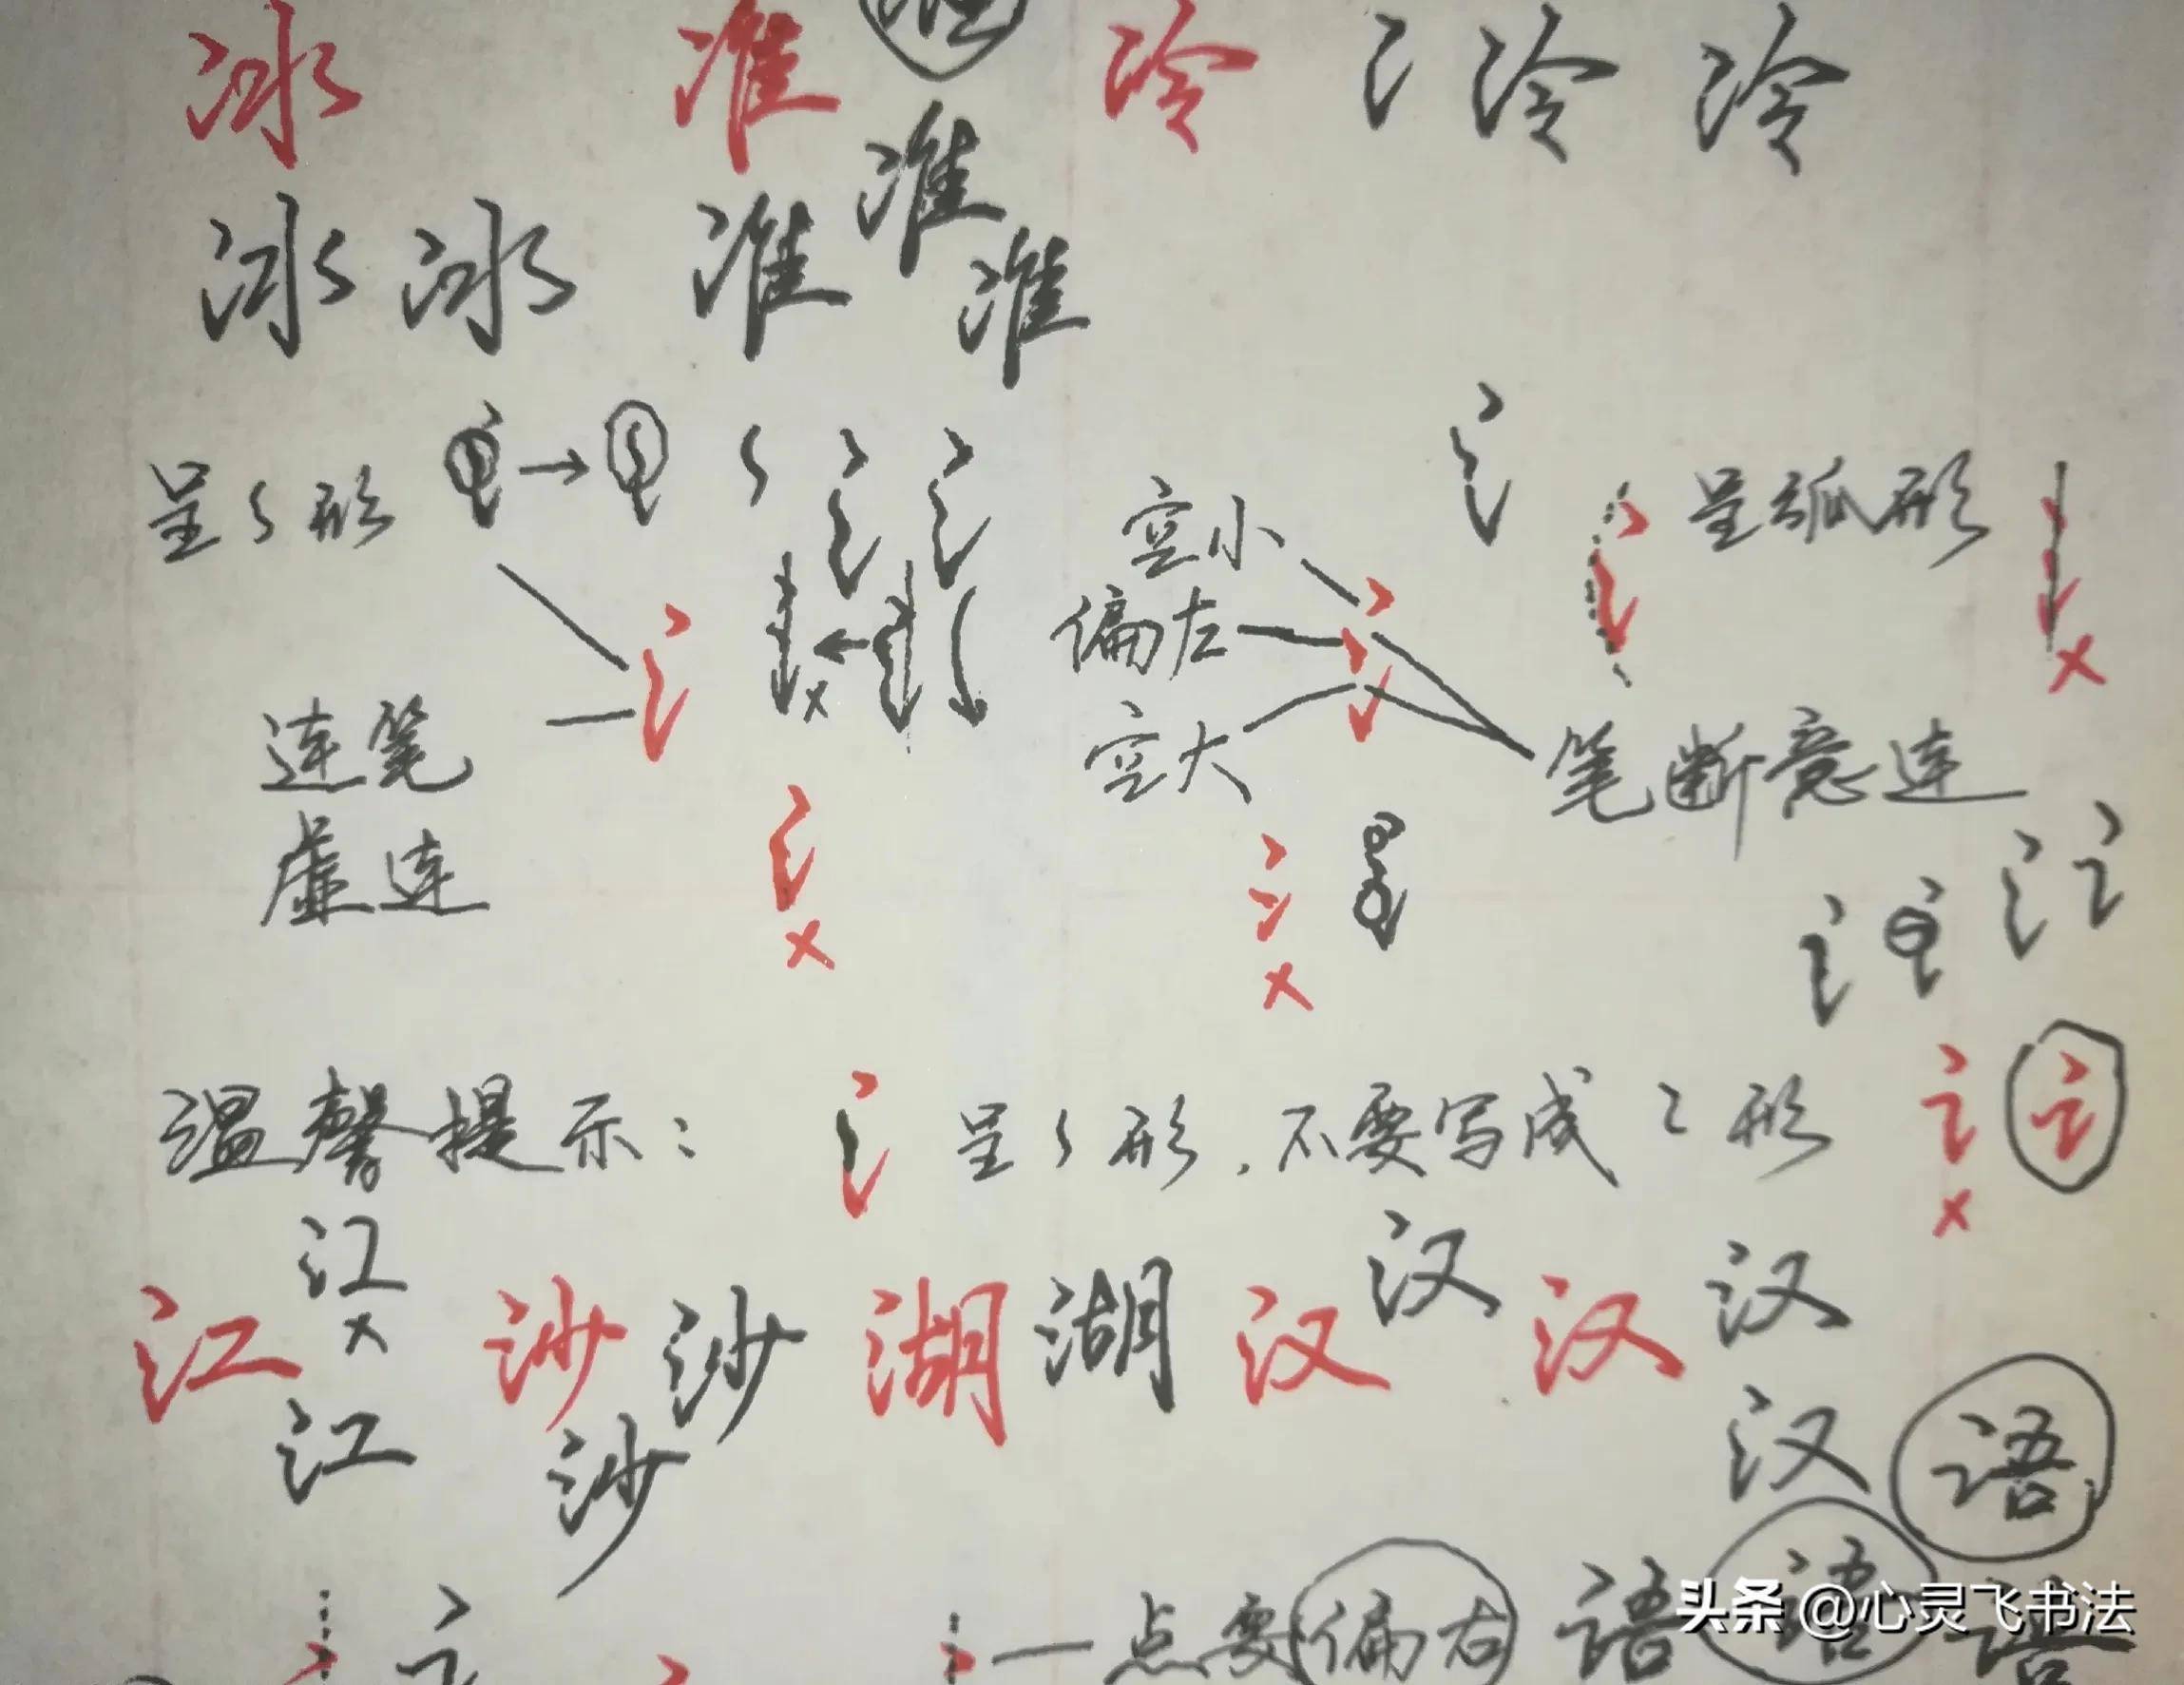 冰 准 冷 冫 冷 冷
准
冰 冰 准 准
呈 形
空小 呈弧形
偏左
连笔 空大 笔断意连
虚连
×
× ×
温馨提示: 氵 呈 形,不要写成 形
×
江 汉
江 沙 沙 湖 湖 汉 汉 汉
×
江 沙 汉 语
点要偏右 语 语 语
头条 @心灵飞书法